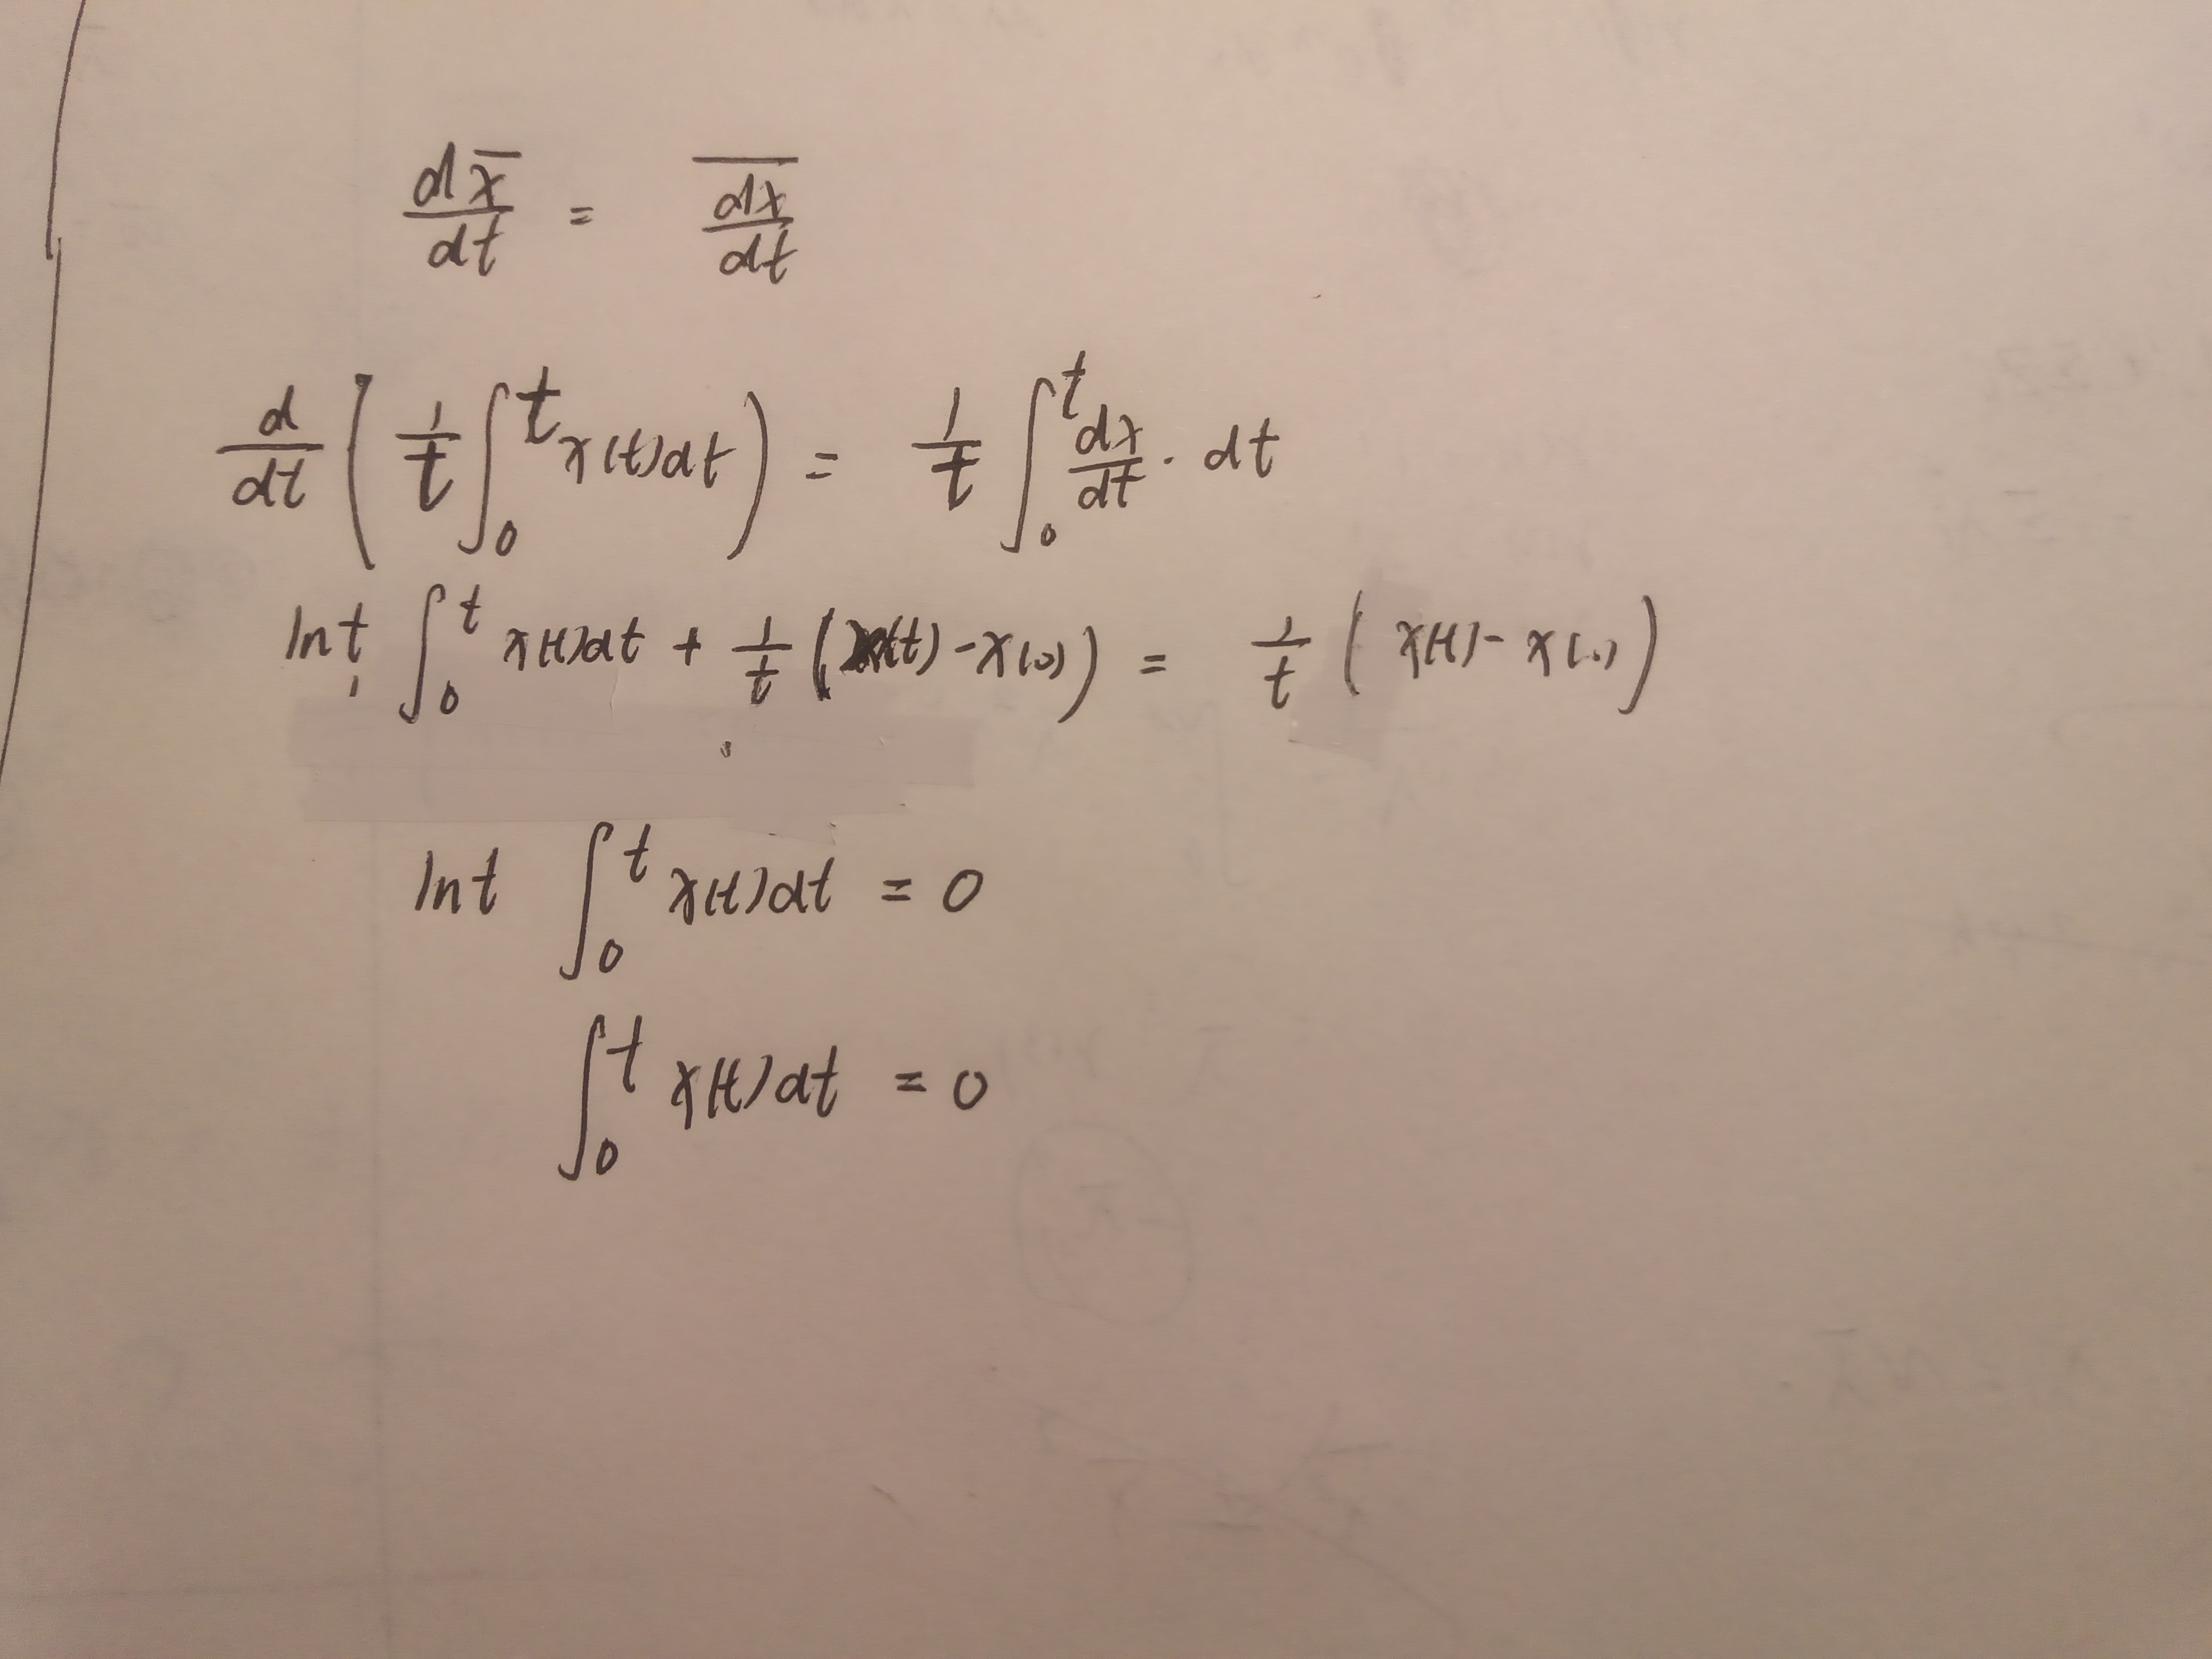 dx̅/dt = \overline{dx/dt}
d/dt ( 1/t ∫₀ᵗ x(t)dt ) = 1/t ∫₀ᵗ dx/dt · dt
ln t ∫₀ᵗ x(t)dt + 1/t ( x(t) - x(0) ) = 1/t ( x(t) - x(0) )
ln t ∫₀ᵗ x(t)dt = 0
∫₀ᵗ x(t)dt = 0